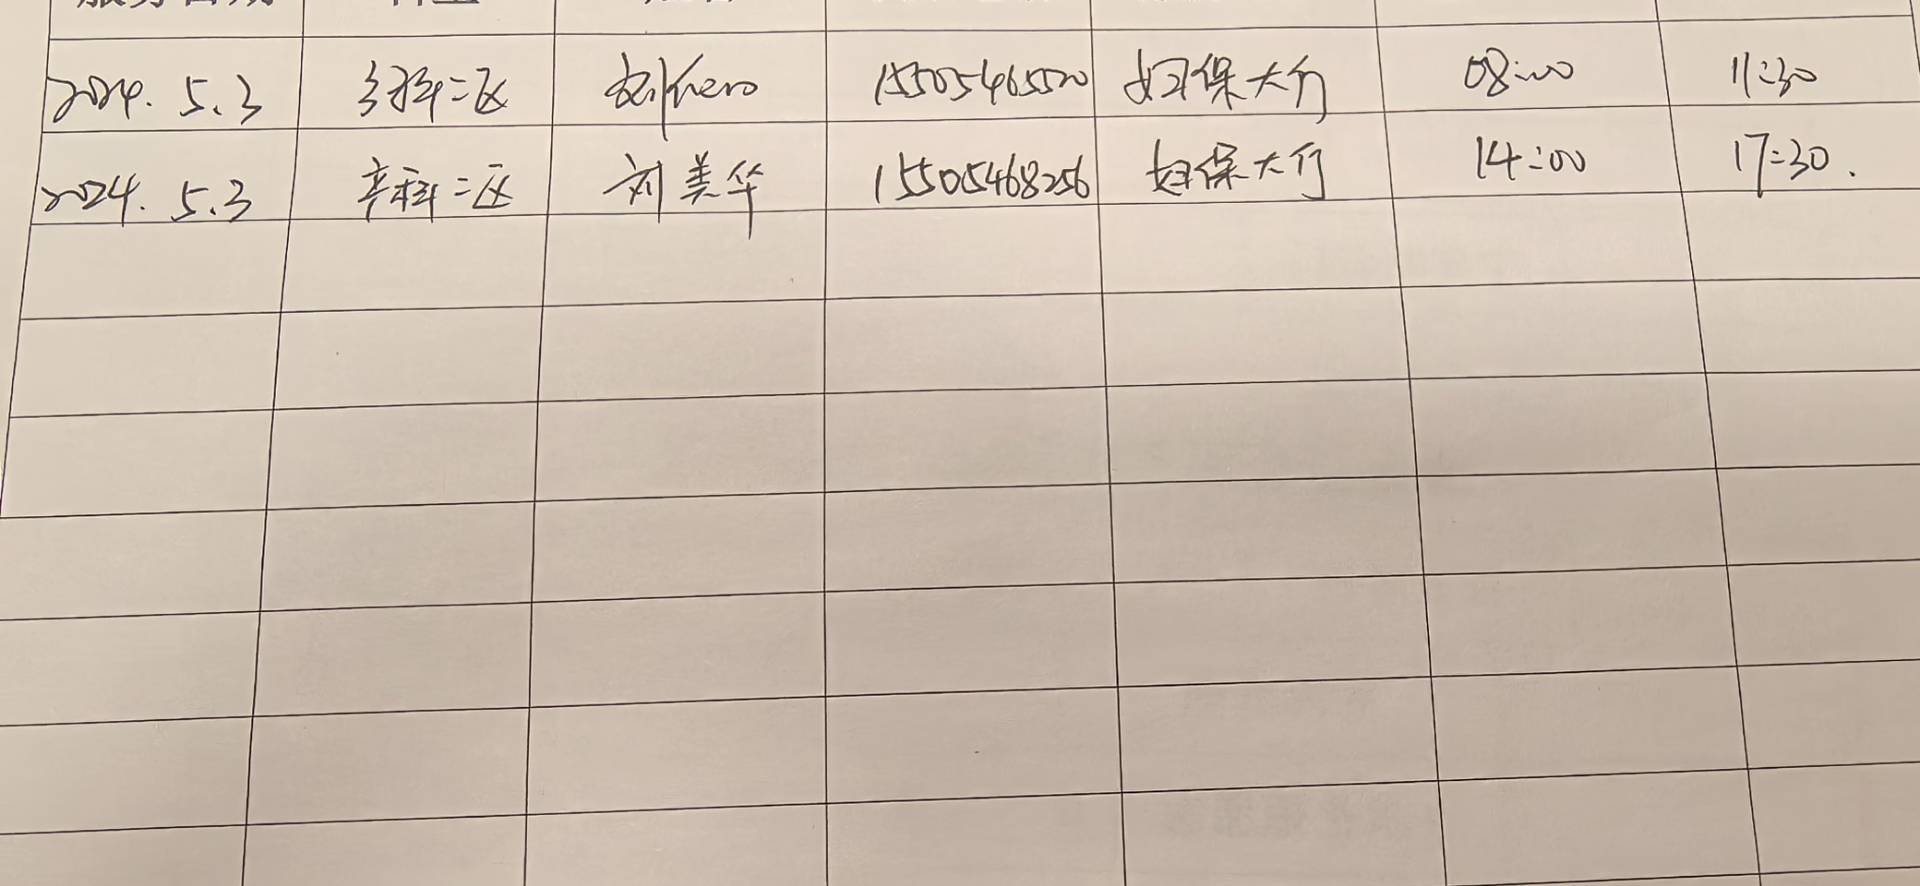 服务日期 科室 姓名
2024. 5.3 产科二区 15505465520 妇保大厅 08:00 11:30
2024. 5.3 产科二区 刘美华 15505468256 妇保大厅 14:00 17:30.